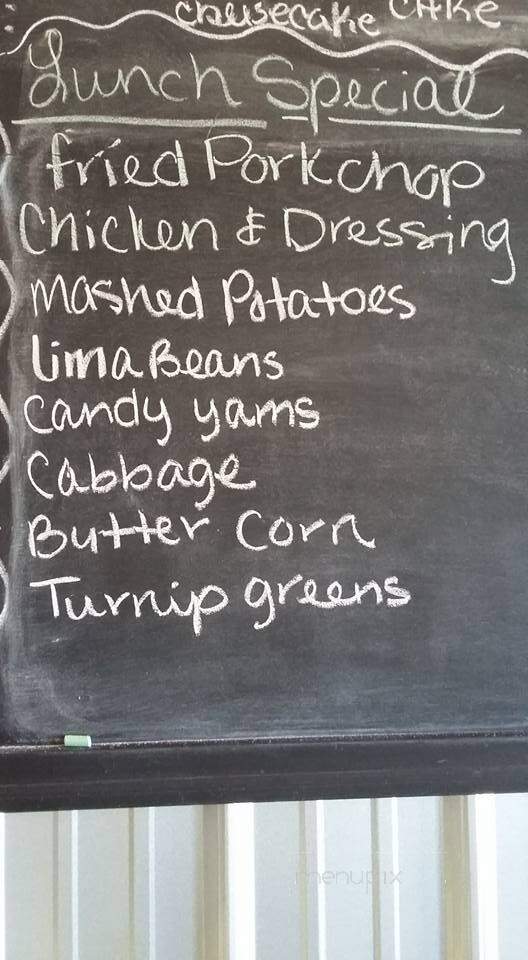 cheesecake CAKE
Lunch Special
fried Porkchop
Chicken & Dressing
mashed Potatoes
Lima Beans
Candy yams
Cabbage
Butter Corn
Turnip greens
menupix